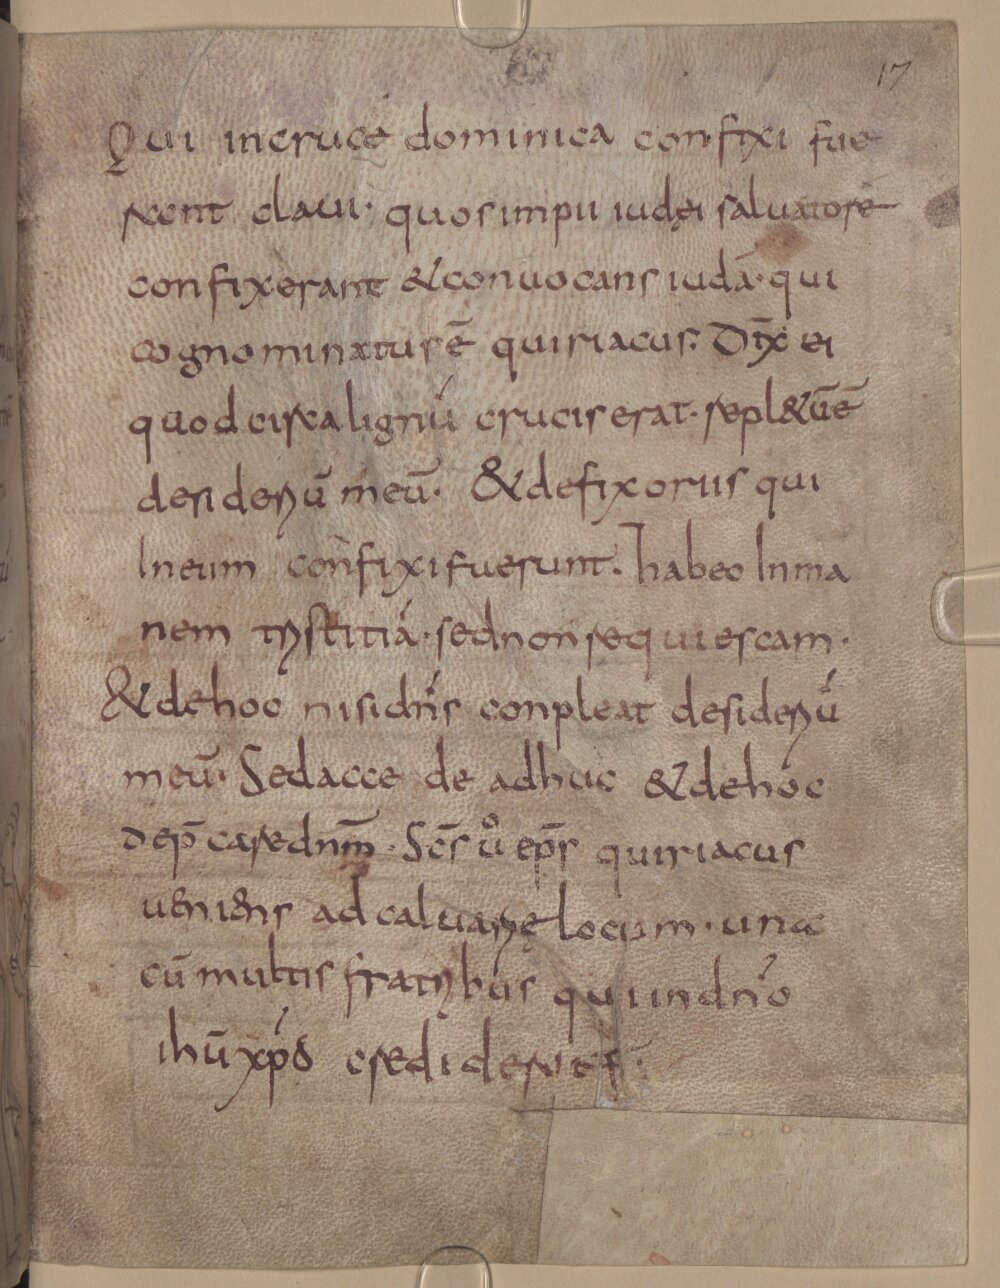 17
Qui incruce dominica confixi fue
rent claui· quosimpii iudęi saluatore
confixerant &conuocans iudá· qui
cognominatus ē quiriacus. Dix̄ ei
quod circa lignū́ crucis erat· repl&ū ē
desideriū meū· &defixoriis qui
Ineum confixi fuerunt. habeo Inma
nem tristitiá· sednon requiescam·
&dehoc nisi dn̄s conpleat desideriū́
meū· Sed acce de adhuc &dehoc
dep̄ care dnm̄· Sc̄s ů ep̄s quiriacus
ueniens ad caluarię locum· una
cū multis fratribus qui indn̄o
ihū xp̄o crediderunt